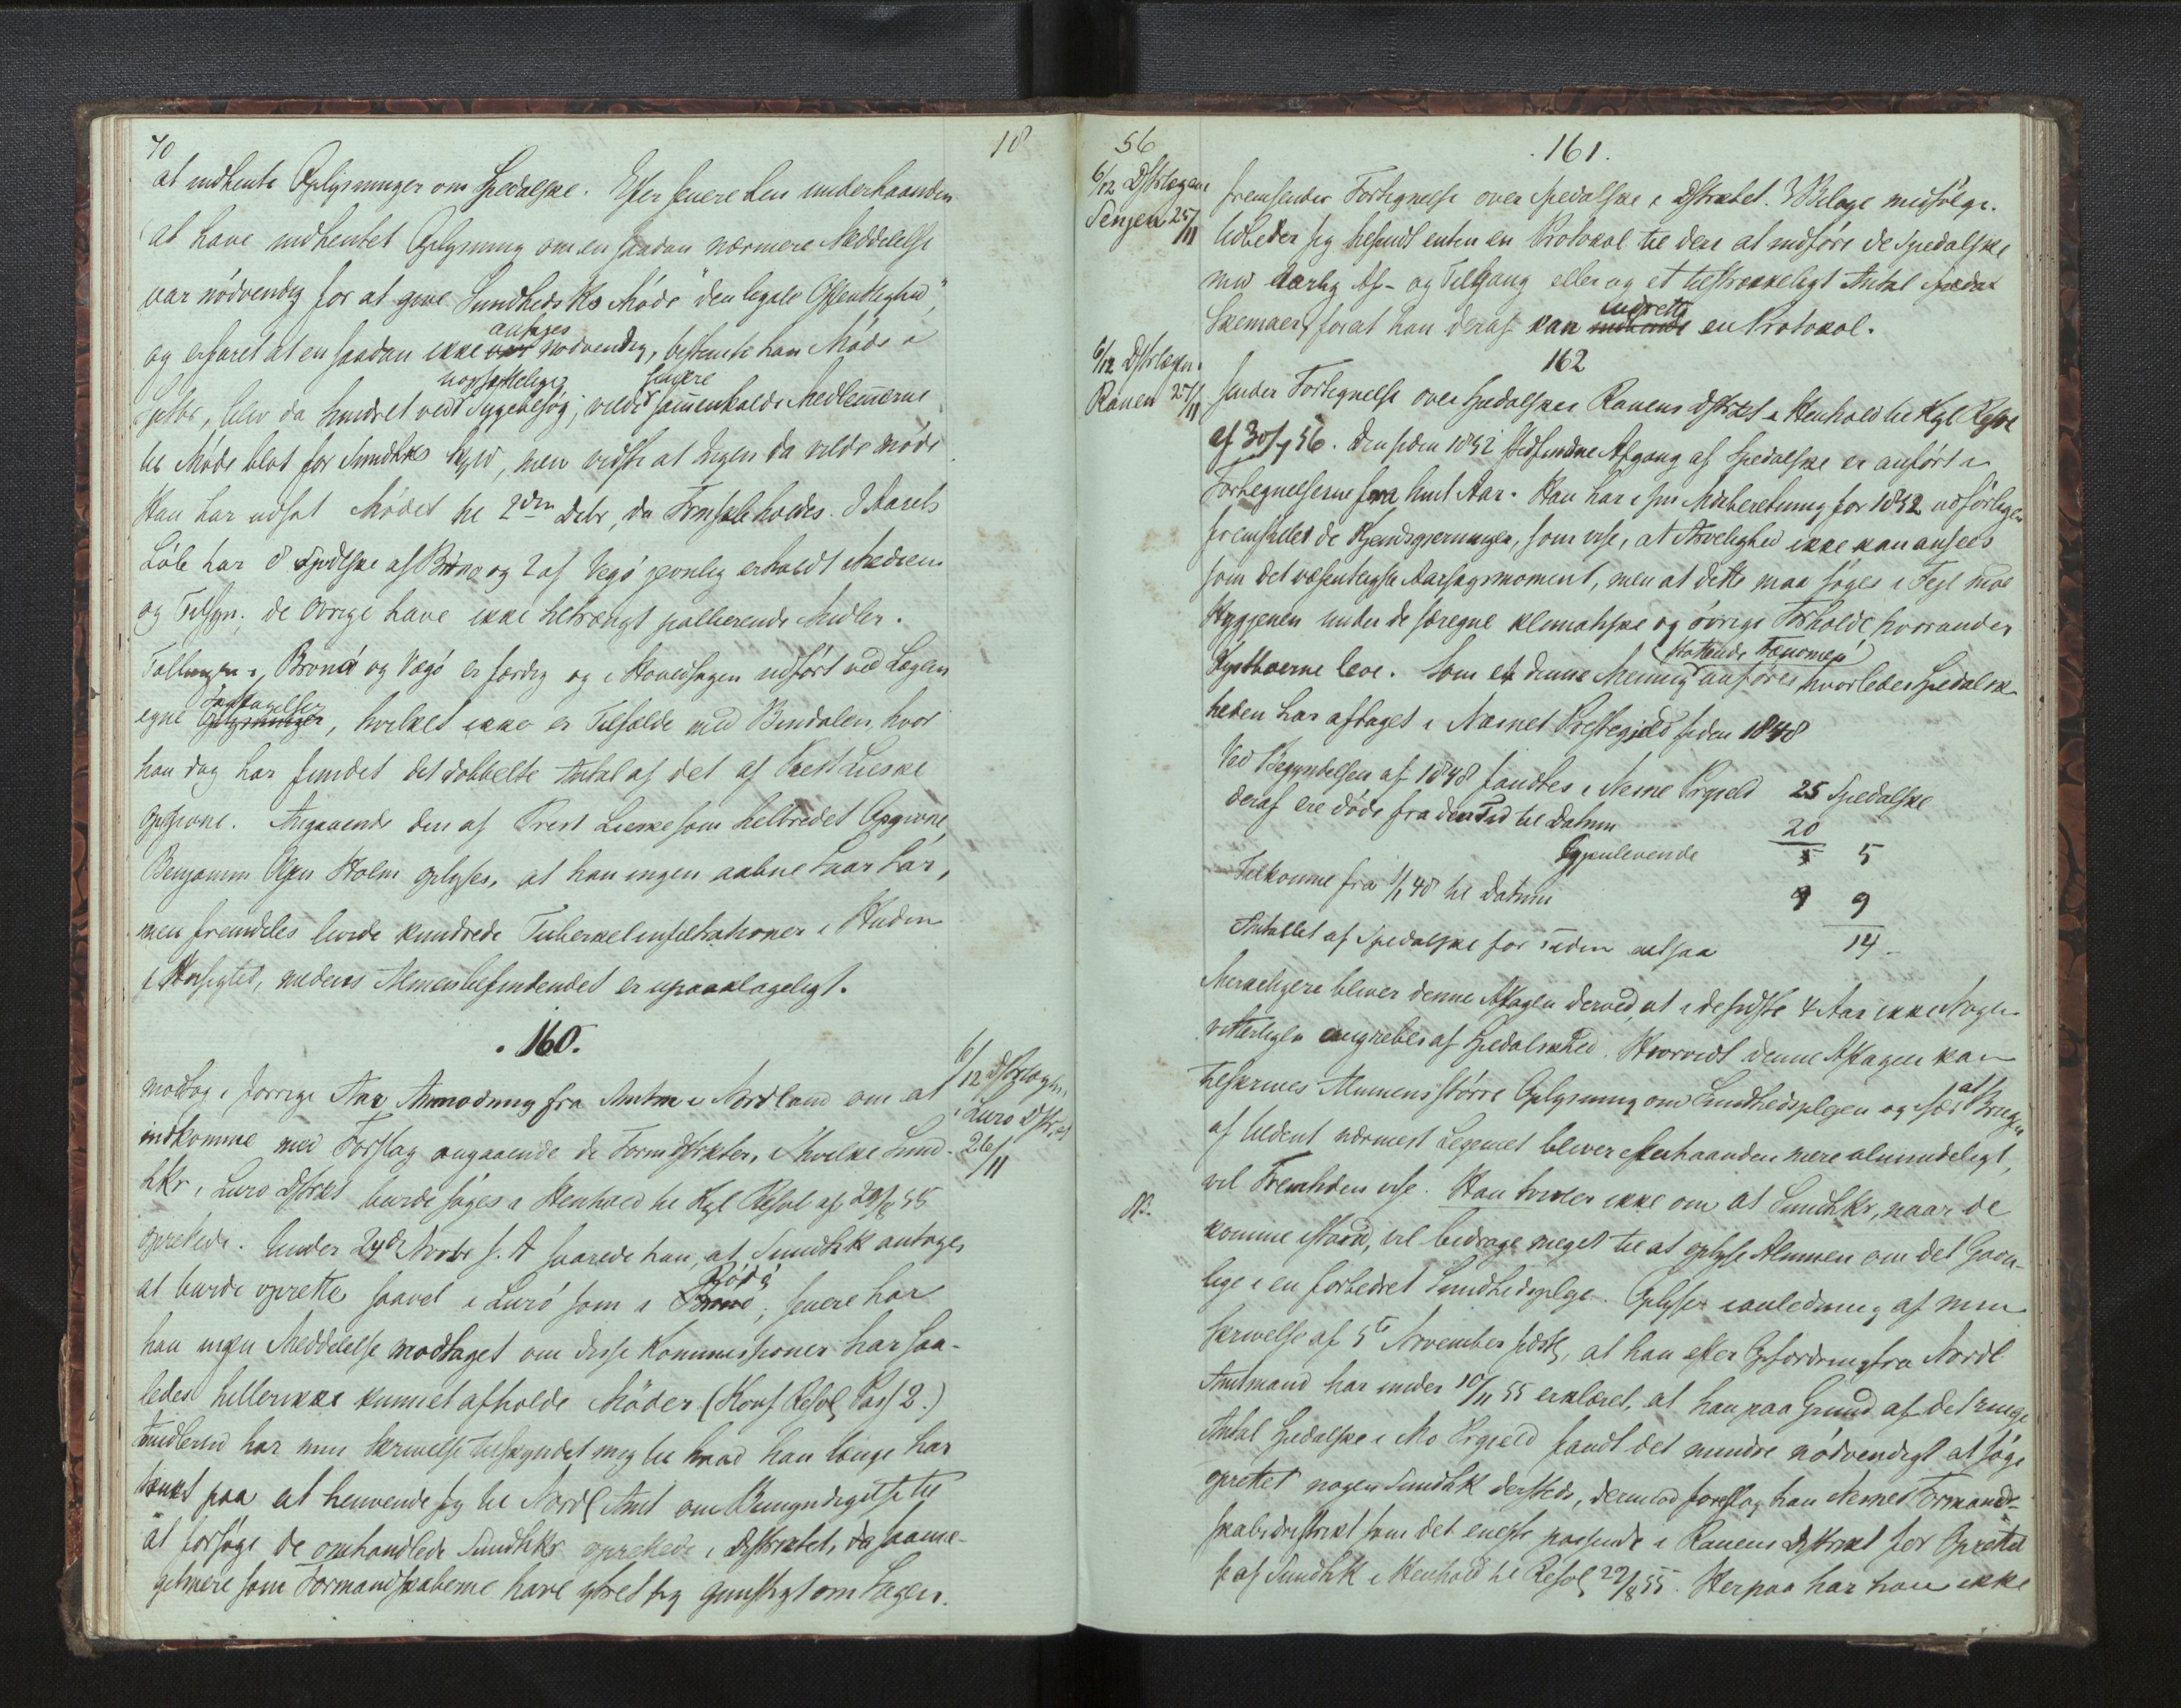 70
18
at indhente Oplysninger om Spedalske. Efter senere hen underhaanden
at have indhentet Oplysning om en saadan nærmere Meddelelse
var nödvendig for at give Sundheds Ks Möde "den legale Offentlighed",
og erfaret at en saadan ikke var antages nödvendig, bestemte han Möde i
blev da hindret ved uopsættelige Sygebesög; vilde senere sam̄enkalde Medlem̄erne
til Möde blot for Sundhks Skyld, men vidste at Ingen da vilde möde
Han har udsat Mödet til 2den Debr, da holdes. I Aarets
Löb har 8 Spedlske af Brönö og 2 af Vegö jevnlig erholdt Medicin
og Tilsyn; de övrige have ikke tiltrængt pallierende Midler.
Tællingen i Brönö og Vegö er færdig og i Hovedsagen udfört ved Lægens
egne Oplysninger Iagttagelser, hvilket ikke er Tilfælde med Bindalen, hvor
han dog har fundet det dobbelte Antal af det af Præst Lieske
opgivne. Angaaende den af Præst Lieske som helbredet Opgivne,
Benjamin Olsen Holm oplyses, at han ingen aabne Saar har,
men fremdeles livide Tuberkelinfiltrationer i Huden
i Ansigtet, medens Almenbefindendet er upaaklageligt.
. 160.
6/12 Dstrlægen
i Lurö Dstrkt
26/11
modtog i forrige Aar Anmodning fra Amtm i Nordland om at
indkomme med Forslag angaaende de Formdstrikter, i hvilke Sund-
hkr i Lurö Dstrkt burde söges i Henhold til Kgl Resol af 29/8 55
oprettede. Under 24de Novbr s. A svarede han, at Sundhk antages
at burde oprettes saavel i Lurö som i Brönö Rödö; senere har
han ingen Meddelelse modtaget om disse Kommissioner har saa-
ledes hellerikke kunnet afholde Möder (Konf Resol Pass 2.)
Imidlertid har min Skrivelse tilskyndet mig til hvad han længe har
tænkt paa at henvende sig til Nordl Amt om Bemyndigelse til
at forsöge de omhandlede Sundhkr oprettede i Distriktet, da saame-
getmere som Formandskaberne have ytret sig gunstigt om Sagen.
56
. 161.
6/12 Dstrlægen
Senjen 25/11
fremsender Fortegnelse over Spedalske i Dstriktet. 3 Bilage medfölge.
Udbeder sig tilsendt enten en Protokol til deri at indföre de Spedalske
med aarlig Af- og Tilgang eller og et tilstrækkeligt Antal
Skemaer, forat han deraf kan indrette en Protokol.
162
6/12 Dstrlægen
Ranen 27/11
sender Fortegnelse over Spedalske i Ranens Dstrikt i Henhold til Kgl Resol
af 30/7 56. Den siden 1852 stedfundne Afgang af Spedalske er anfört i
Fortegnelserne for hvert Aar. Han har i sin Medberetning for 1852 udförligen
fremstillet de Kjendsgjerninger, som vise, at Arvelighed ikke kan ansees
som det væsentligste Aarsagsmoment, men at dette maa söges i Fejl mod
Hygienen under de særegne klimatiske og övrige Forholde hvorunder
Kystboerne leve. Som et denne Mening støttende Fænomen anføres hvorledes Spedalsk-
heden har aftaget i Næsnes Præstegjeld siden 1848
Ved Begyndelsen af 1848 fandtes i Nesne Prgjeld 25 Spedalske
deraf ere döde fra den Tid til Datum 20
Igjenlevende 5 5
Tilkomne fra 1/1 48 til Datum 9 9
Antallet af Spedalske for Tiden altsaa 14
Mærkeligere bliver denne Aftagen derved, at i de sidste 4 Aar ikke Nogen
vitterligen angrebes af Spedalskhed. Hvorvidt denne Aftagen kan
tilskrives Almuens större Oplysning om Sundhedsplejen og især at Brugen
af Uldent nærmest Legemet bliver efterhaanden mere almindeligt,
vil Fremtiden vise. Han tvivler ikke om at Sundhkr, naar de
komme istand, vil bidrage meget til at oplyse Almuen om det Gavn-
lige i en forbedret Sundhedspleje. Oplyser i Anledning af min
Skrivelse af 5te November sidstl, at han efter Opfordring fra Nordl.
Amtmand har under 10/11 55 erklæret, at han paa Grund af det ringe
Antal Spedalske i Mo Prgjeld fandt det mindre nödvendigt at söge
oprettet nogen Sundhk dersteds, derimod foreslog han Nesnes Formand-
skabsdistrikt som det eneste passende i Ranens Distrikt for Oprettel
se af Sundhk i Henhold til Resol 29/8 55. Herpaa har han ikke